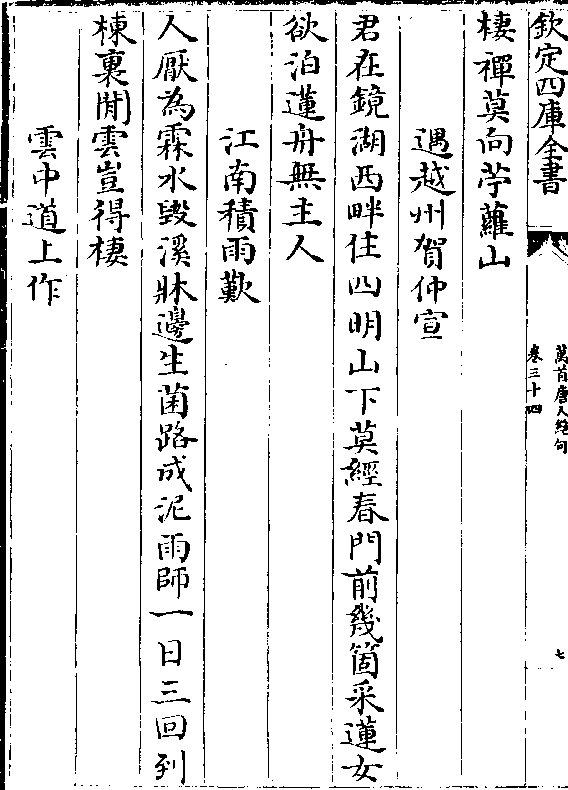 欽定四庫全書
萬首唐人絶句
卷三十四
七
棲禪莫向苧蘿山
遇越州賀仲宣
君在鏡湖西畔住四明山下莫經春門前幾箇采蓮女
欲泊蓮舟無主人
江南積雨歎
人厭為霖水毀溪牀邊生菌路成泥雨師一日三回到
棟裏閒雲豈得棲
雲中道上作